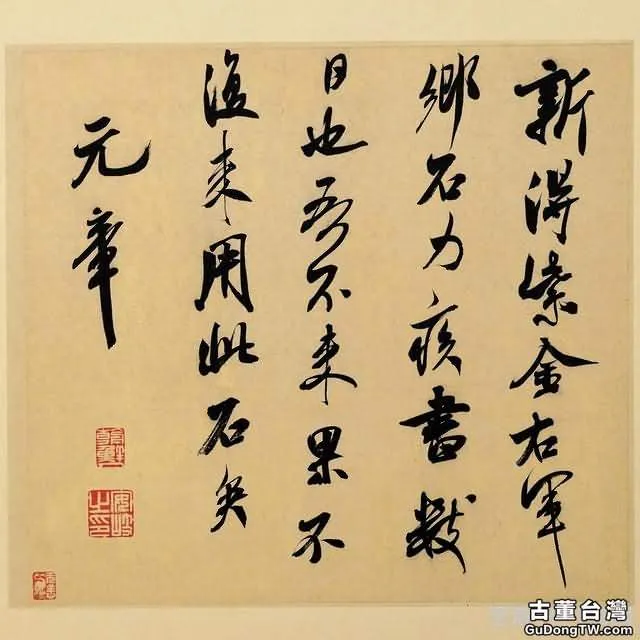 新得紫金右軍
鄉石力疾書數
日也吾不来果不
復来用此石矣
元章
古董台灣
GuDongTW.com